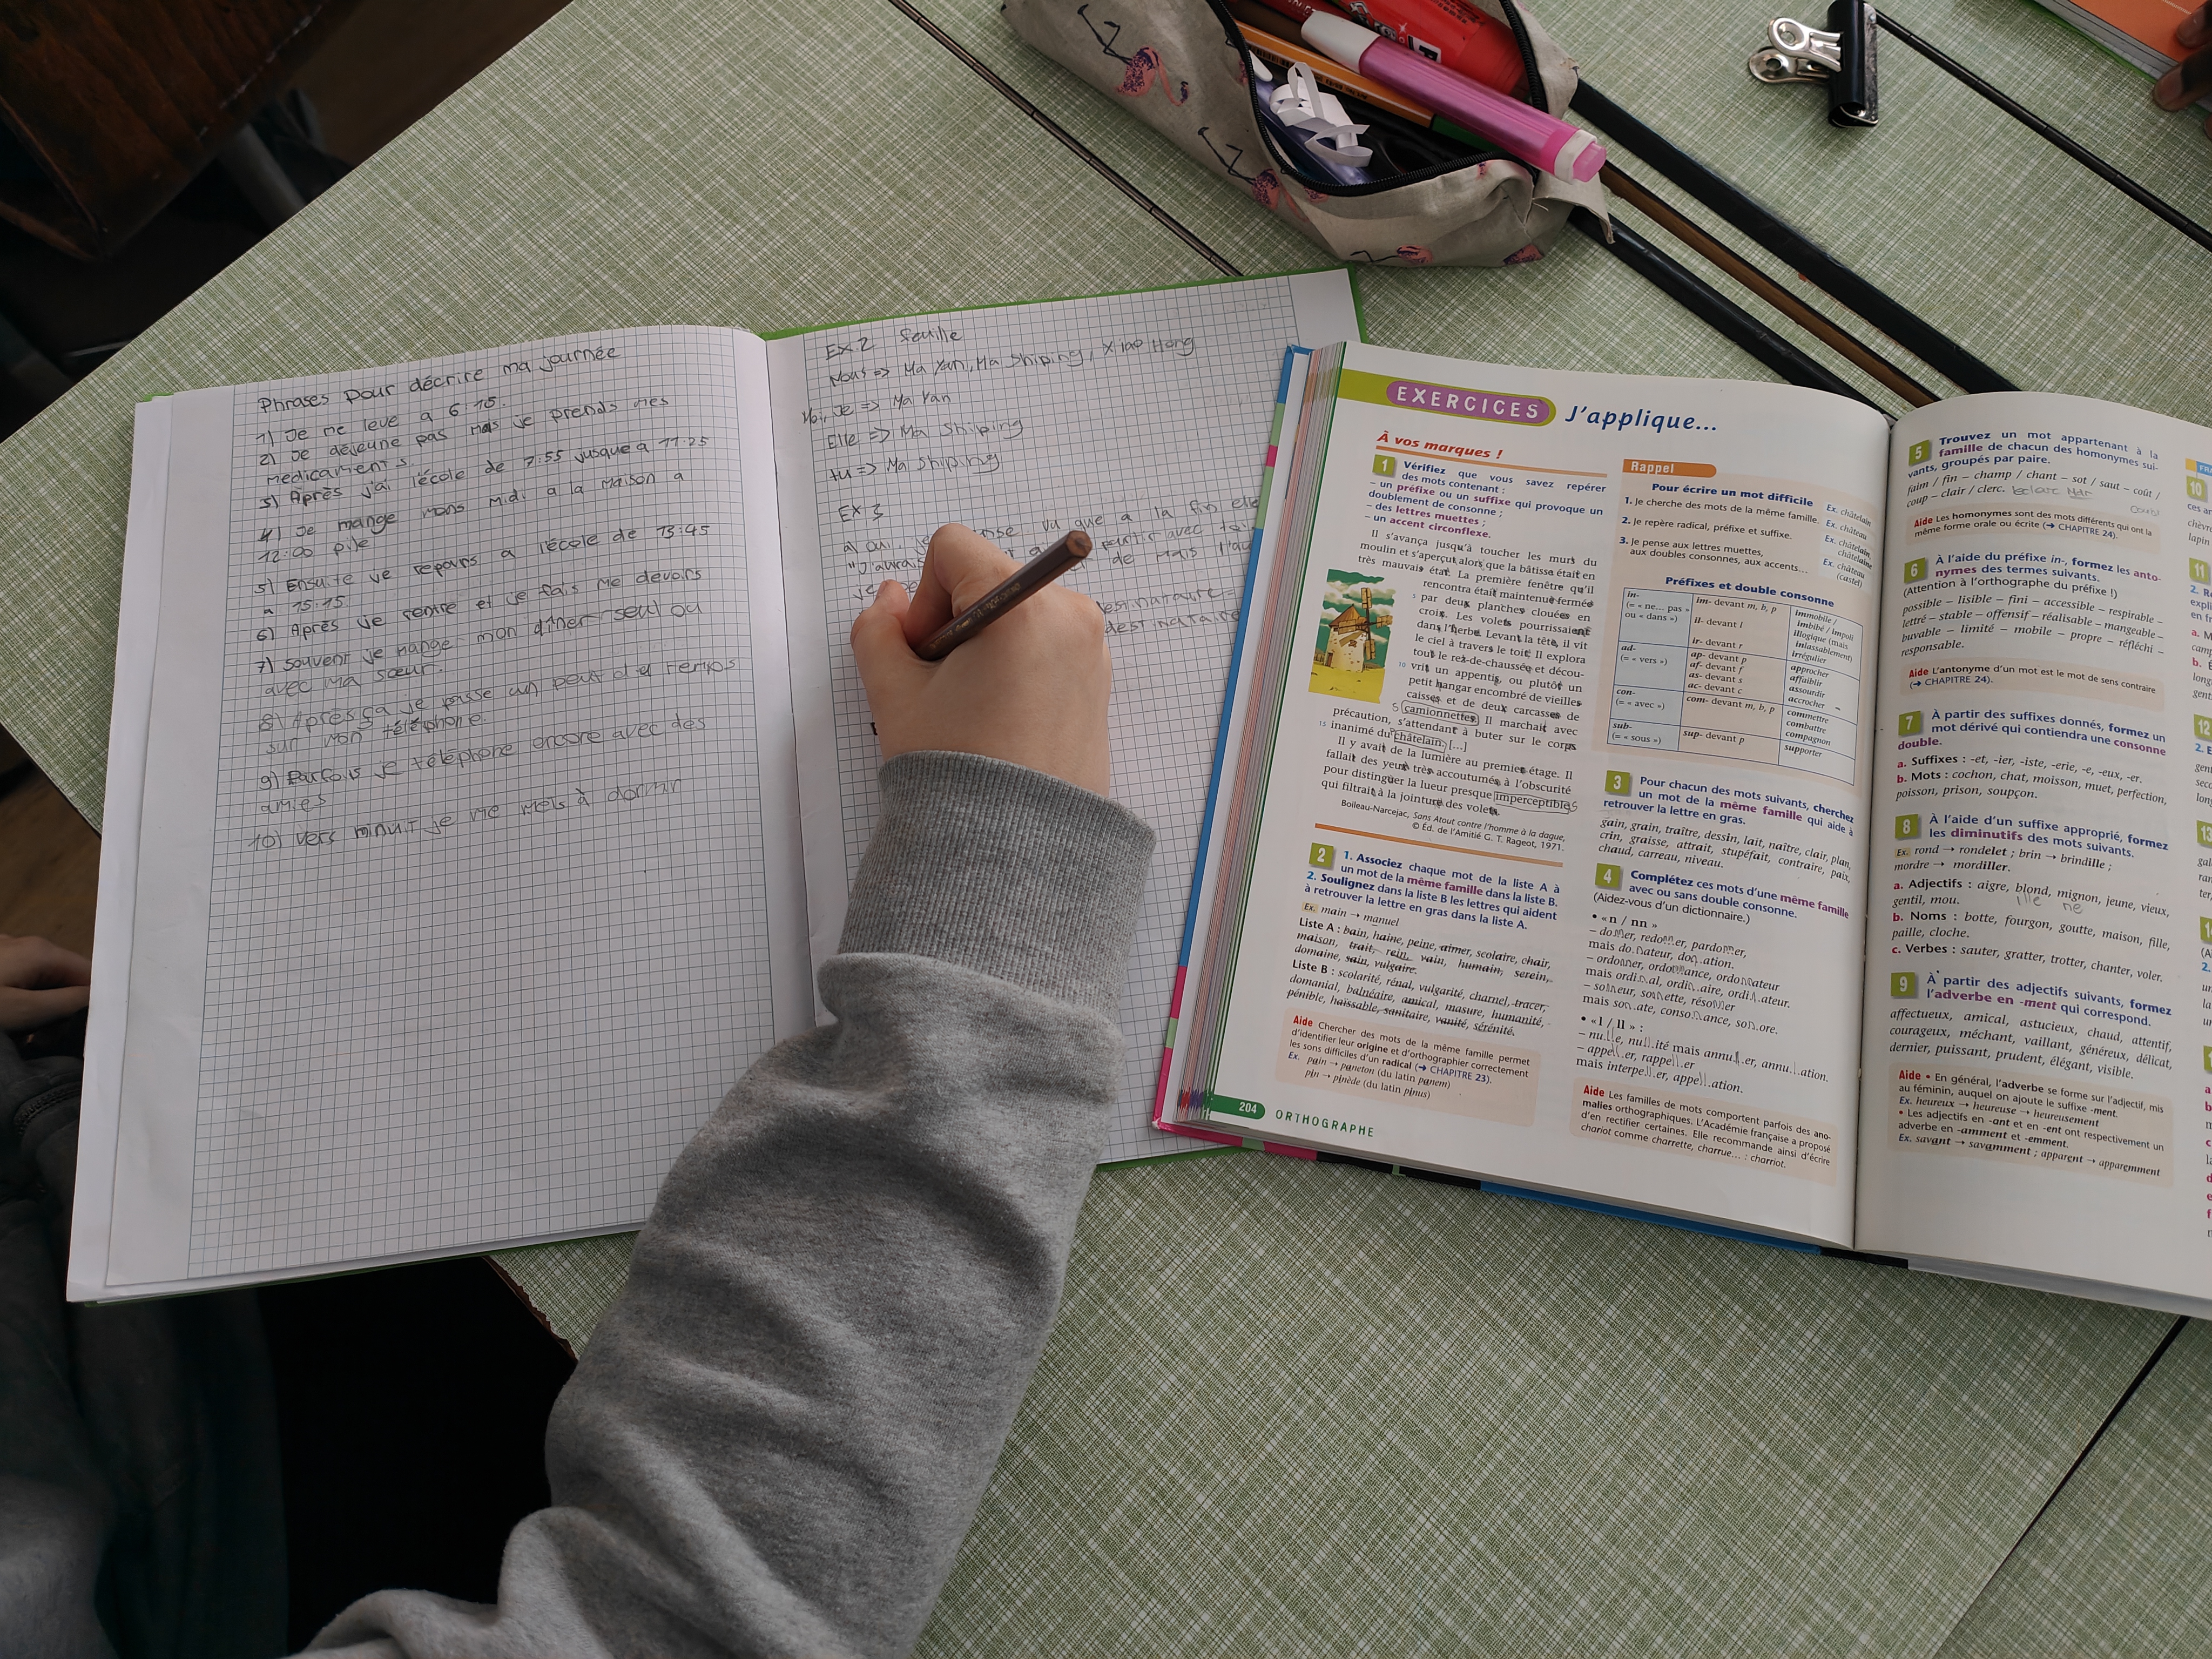 Phrases pour décrire ma journée
1) Je me leve a 6:15.
2) Je déjeune pas mais je prends mes
medicaments.
3) Après j'ai l'école de 7:55 jusque a 11:25
4) Je mange mons midi a la maison a
12:00 pile
5) Ensuite je repars a l'école de 13:45
a 15:15
6) Après je rentre et je fais me devoirs
7) Souvent je mange mon dîner seul ou
avec ma sœur.
8) Après ça je passe un peut du temps
sur mon téléphone.
9) Parfois je téléphone encore avec des
amies
10) Vers minuit je me mets à dormir
EX.2 feuille
Nous => Ma Yan, Ma Shiping, Xiao Hong
Je => Ma Yan
Elle => Ma Shiping
tu => Ma Shiping
EX 3
a) oui, vu que a la fin elle
"J'aurais partir avec
de mais
destinataire
destinataire
EXERCICES J'applique...
À vos marques !
1 Vérifiez que vous savez repérer
des mots contenant :
– un préfixe ou un suffixe qui provoque un
doublement de consonne ;
– des lettres muettes ;
– un accent circonflexe.
Il s'avança jusqu'à toucher les murs du
moulin et s'aperçut alors que la bâtisse était en
très mauvais état. La première fenêtre qu'il
rencontra était maintenue fermée
5 par deux planches clouées en
croix. Les volets pourrissaient
dans l'herbe. Levant la tête, il vit
le ciel à travers le toit. Il explora
tout le rez-de-chaussée et décou-
10 vrit un appentis, ou plutôt un
petit hangar encombré de vieilles
caisses et de deux carcasses de
camionnettes. Il marchait avec
précaution, s'attendant à buter sur le corps
15 inanimé du châtelain. [...]
Il y avait de la lumière au premier étage. Il
fallait des yeux très accoutumés à l'obscurité
pour distinguer la lueur presque imperceptible
qui filtrait à la jointure des volets.
Boileau-Narcejac, Sans Atout contre l'homme à la dague,
© Éd. de l'Amitié G. T. Rageot, 1971.
2 1. Associez chaque mot de la liste A à
un mot de la même famille dans la liste B.
2. Soulignez dans la liste B les lettres qui aident
à retrouver la lettre en gras dans la liste A.
Ex. main → manuel
Liste A : bain, haine, peine, aimer, scolaire, chair,
maison, trait, rein, vain, humain, serein,
domaine, sain, vulgaire.
Liste B : scolarité, rénal, vulgarité, charnel, tracer,
domanial, balnéaire, amical, masure, humanité,
pénible, haïssable, sanitaire, vanité, sérénité.
Aide Chercher des mots de la même famille permet
d'identifier leur origine et d'orthographier correctement
les sons difficiles d'un radical (➔ CHAPITRE 23).
Ex. pain → paneton (du latin panem)
pin → pinède (du latin pinus)
204 ORTHOGRAPHE
Rappel
Pour écrire un mot difficile
1. Je cherche des mots de la même famille. Ex. châtelain
2. Je repère radical, préfixe et suffixe. Ex. châtelain
3. Je pense aux lettres muettes, Ex. châtelain,
aux doubles consonnes, aux accents... châtelaine
Ex. château
(castel)
Préfixes et double consonne
in- im- devant m, b, p immobile /
(= « ne... pas » imbibé / impoli
ou « dans ») il- devant l illogique (mais
inlassablement)
ir- devant r irrégulier
ad- ap- devant p approcher
(= « vers ») af- devant f affaiblir
as- devant s assourdir
ac- devant c accrocher
con- com- devant m, b, p commettre
(= « avec ») combattre
compagnon
sub- sup- devant p supporter
(= « sous »)
3 Pour chacun des mots suivants, cherchez
un mot de la même famille qui aide à
retrouver la lettre en gras.
gain, grain, traître, dessin, lait, naître, clair, plan,
crin, graisse, attrait, stupéfait, contraire, paix,
chaud, carreau, niveau.
4 Complétez ces mots d'une même famille
avec ou sans double consonne.
(Aidez-vous d'un dictionnaire.)
• « n / nn »
– donner, redonner, pardonner,
mais donateur, donation.
– ordonner, ordonnance, ordonnateur
mais ordinal, ordinaire, ordinateur.
– sonneur, sonnette, résonner
mais sonate, consonance, sonore.
• « l / ll » :
– nulle, nullité mais annuler, annulation.
– appeller, rappeller
mais interpeller, appellation.
Aide Les familles de mots comportent parfois des ano-
malies orthographiques. L'Académie française a proposé
d'en rectifier certaines. Elle recommande ainsi d'écrire
chariot comme charrette, charrue... : charriot.
5 Trouvez un mot appartenant à la
famille de chacun des homonymes sui-
vants, groupés par paire.
faim / fin – champ / chant – sot / saut – coût /
coup – clair / clerc.
Aide Les homonymes sont des mots différents qui ont la
même forme orale ou écrite (➔ CHAPITRE 24).
6 À l'aide du préfixe in-, formez les anto-
nymes des termes suivants.
(Attention à l'orthographe du préfixe !)
possible – lisible – fini – accessible – respirable –
lettré – stable – offensif – réalisable – mangeable –
buvable – limité – mobile – propre – réfléchi –
responsable.
Aide L'antonyme d'un mot est le mot de sens contraire
(➔ CHAPITRE 24).
7 À partir des suffixes donnés, formez un
mot dérivé qui contiendra une consonne
double.
a. Suffixes : -et, -ier, -iste, -erie, -e, -eux, -er.
b. Mots : cochon, chat, moisson, muet, perfection,
poisson, prison, soupçon.
8 À l'aide d'un suffixe approprié, formez
les diminutifs des mots suivants.
Ex. rond → rondelet ; brin → brindille ;
mordre → mordiller.
a. Adjectifs : aigre, blond, mignon, jeune, vieux,
gentil, mou.
ille ne
b. Noms : botte, fourgon, goutte, maison, fille,
paille, cloche.
c. Verbes : sauter, gratter, trotter, chanter, voler.
9 À partir des adjectifs suivants, formez
l'adverbe en -ment qui correspond.
affectueux, amical, astucieux, chaud, attentif,
courageux, méchant, vaillant, généreux, délicat,
dernier, puissant, prudent, élégant, visible.
Aide • En général, l'adverbe se forme sur l'adjectif, mis
au féminin, auquel on ajoute le suffixe -ment.
Ex. heureux → heureuse → heureusement
• Les adjectifs en -ant et en -ent ont respectivement un
adverbe en -amment et -emment.
Ex. savant → savamment ; apparent → apparemment
10
11
12
13